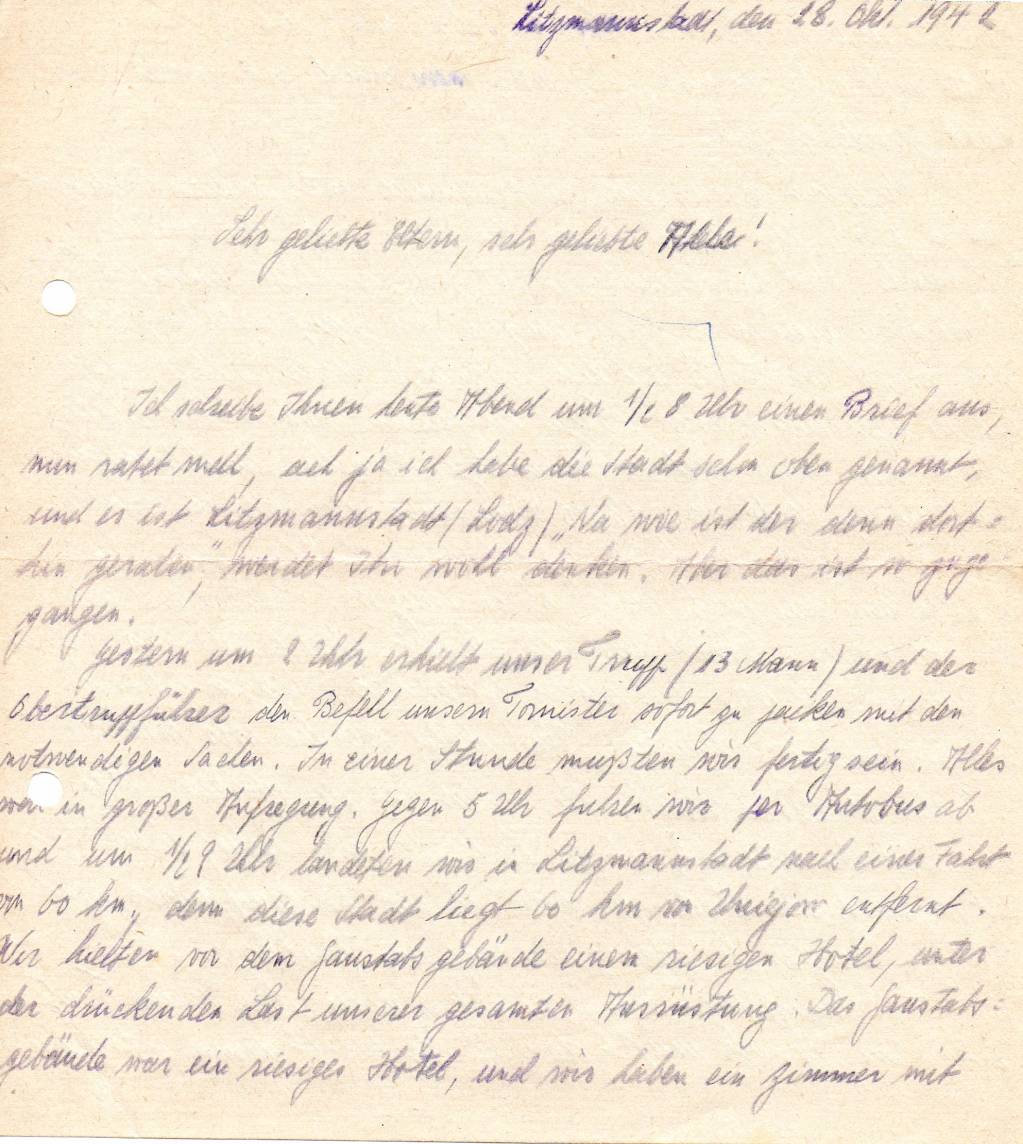 Litzmannstadt, den 28. Okt. 1942
Sehr geliebte Eltern, sehr geliebte !
Ich schreibe Ihnen heute Abend um 1/2 8 Uhr einen Brief aus,
nun ratet mall, ach ja ich habe die Stadt schon oben genannt,
und es ist Litzmannstadt (Lodz) „Na wie ist der denn dort=
hin geraten", werdet Ihr wohl denken. Aber das ist so gege
gangen.
Gestern um 2 Uhr erhielt unser Trupp (13 Mann) und der
Obertruppführer den Befehl unsern Tornister sofort zu packen mit den
notwendigen Sachen. In einer Stunde mußten wir fertig sein. Alles
war in großer Aufregung. Gegen 5 Uhr fuhren wir per Autobus ab
und um 1/2 9 Uhr landeten wir in Litzmannstadt nach einer Fahrt
von 60 km, denn diese Stadt liegt 60 km von Uniejow entfernt.
Wir hielten vor dem Gaustabsgebäude einem riesigen Hotel, unter
der drückenden Last unserer gesamten Ausrüstung. Das Gaustabs=
gebäude war ein riesiges Hotel, und wir haben ein Zimmer mit